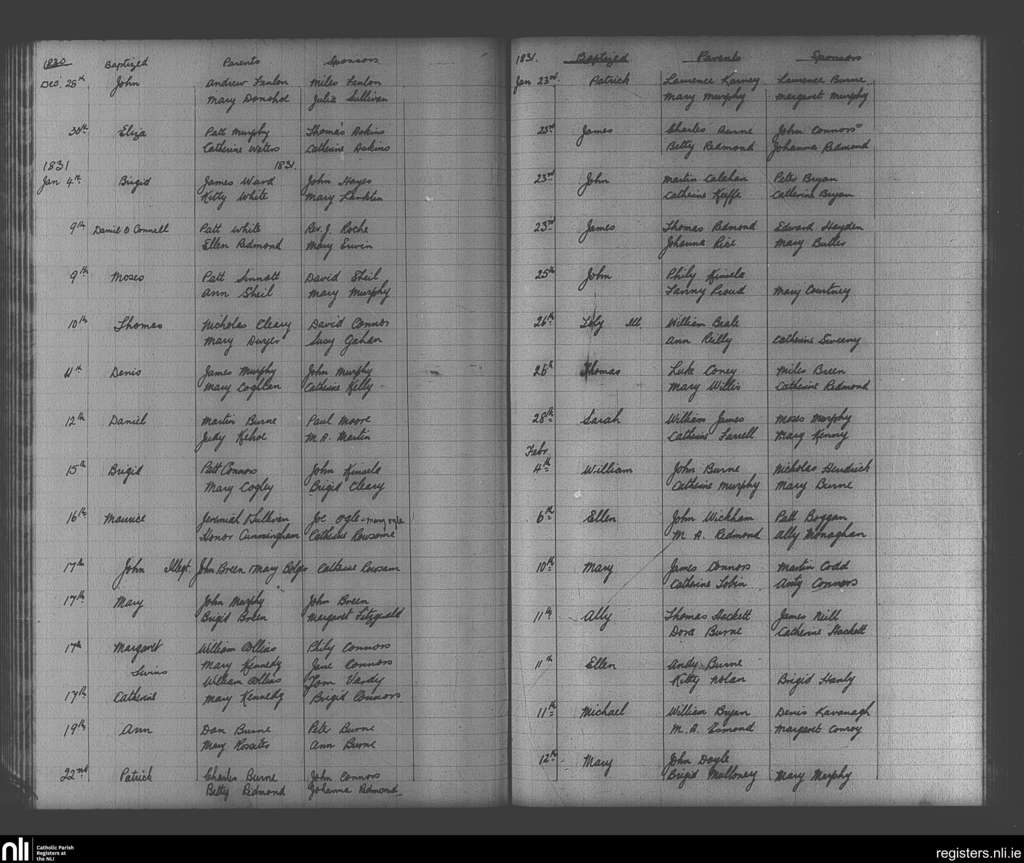 1830 Baptized Parents Sponsors
Dec. 26th John Andrew Fanlon Miles Fanlon
Mary Donohoe Julia Sullivan
30th Eliza Patt Murphy Thomas
Catherine Waters Catherine
1831 1831.
Jan 4th Brigid James Ward John Hayes
Kitty White Mary
9th Daniel O Connell Patt White Rev. J. Roche
Ellen Redmond Mary
9th Moses Patt Sinnatt David Sheil
Ann Sheil Mary Murphy
10th Thomas Nicholas Cleary David Connor
Mary Dwyer Susy Gahan
11th Denis James Murphy John Murphy
Mary Coghlan Catherine Kelly
12th Daniel Martin Burne Paul Moore
Judy Kehoe M. A. Martin
15th Brigid Patt Connors John Kinsela
Mary Cogley Brigid Cleary
16th Maurice Jeremiah O'Sullivan Joe Ogle - Mary Ogle
Honor Cunningham Catherine Rowsome
17th John Illegt. John Breen & Mary Bolger Catherine
17th Mary John Murphy John Breen
Brigid Breen Margaret Fitzgerald
17th Margaret William Collins Phily Connors
Twins Mary Kennedy Jane Connors
William Collins Tom Vardy
17th Catherine Mary Kennedy Brigid Connors
19th Ann Dan Burne Peter Burne
Mary Ann Burne
22nd Patrick Charles Burne John Connors
Betty Redmond Johanna Redmond
1831. Baptized Parents Sponsors
Jan 23rd Patrick Laurence Laurence Burne
Mary Murphy Margaret Murphy
23rd James Charles Burne John Connors
Betty Redmond Johanna Redmond
23rd John Martin Calahan Peter Bryan
Catherine Keeffe Catherine Bryan
23rd James Thomas Redmond Edward Hayden
Johanna Rice Mary Butler
25th John Phily Kinsela
Fanny Proud Mary Courtney
26th William Beale
Ann Reilly Catherine Sweeny
26th Thomas Luke Coney Miles Breen
Mary Willis Catherine Redmond
28th Sarah William James Moses Murphy
Catherine Farrell Mary Kenny
Febr
4th William John Burne Nicholas Hendrick
Catherine Murphy Mary Burne
6th Ellen John Wickham Patt Boggan
M. A. Redmond Ally Monaghan
10th Mary James Connors Martin Codd
Catherine Tobin Anty Connors
11th Ally Thomas Hackett James Neill
Dora Burne Catherine Hackett
11th Ellen Andy Burne
Kitty Nolan Brigid Hanly
11th Michael William Bryan Denis Kavanagh
M. A. Esmond Margaret Conroy
12th Mary John Doyle
Brigid Mulloney Mary Murphy
nli Catholic Parish
Registers at
the NLI
registers.nli.ie